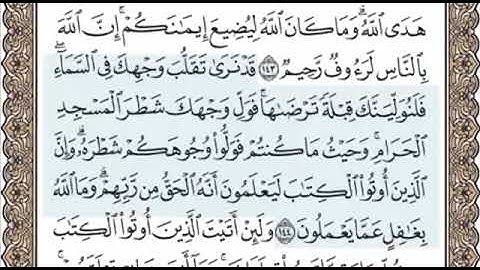 هَدَى ٱللَّهُ ۗ وَمَا كَانَ ٱللَّهُ لِيُضِيعَ إِيمَـٰنَكُمْ ۚ إِنَّ ٱللَّهَ
بِٱلنَّاسِ لَرَءُوفٌ رَّحِيمٌ ١٤٣ قَدْ نَرَىٰ تَقَلُّبَ وَجْهِكَ فِى ٱلسَّمَآءِ ۖ
فَلَنُوَلِّيَنَّكَ قِبْلَةً تَرْضَىٰهَا ۚ فَوَلِّ وَجْهَكَ شَطْرَ ٱلْمَسْجِدِ
ٱلْحَرَامِ ۚ وَحَيْثُ مَا كُنتُمْ فَوَلُّوا۟ وُجُوهَكُمْ شَطْرَهُۥ ۗ وَإِنَّ
ٱلَّذِينَ أُوتُوا۟ ٱلْكِتَـٰبَ لَيَعْلَمُونَ أَنَّهُ ٱلْحَقُّ مِن رَّبِّهِمْ ۗ وَمَا ٱللَّهُ
بِغَـٰفِلٍ عَمَّا يَعْمَلُونَ ١٤٤ وَلَئِنْ أَتَيْتَ ٱلَّذِينَ أُوتُوا۟ ٱلْكِتَـٰبَ